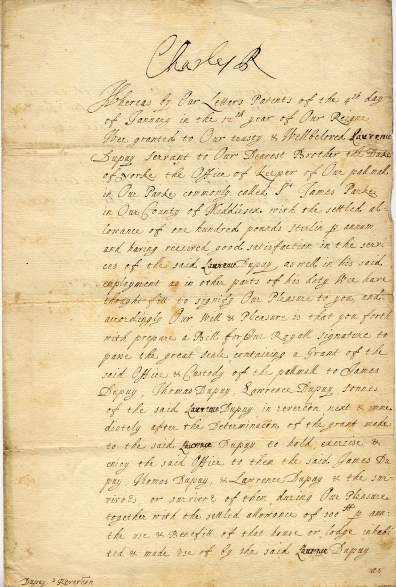 Charles R
Whereas by Our Letters Patents of the 4th day
of January in the 12th year of Our Reigne
Wee granted to Our trusty & Wellbeloved Laurence
Dupuy servant to Our Dearest Brother the Duke
of Yorke the Office of Keeper of Our palmall
in Our Parke commonly called St James Parke
in Our County of Middlesex with the settled al-
lowance of one hundred pounds sterlin p annum
and haveing received good satisfaction in the servi-
ces of the said Laurence Dupuy as well in his said
employment as in other parts of his duty Wee have
thought fitt to signify Our Pleasure to you, and
accordingly Our Will & Pleasure is that you forth
with prepare a Bill for Our Royall signature to
passe the great seale containing a Grant of the
said Office & Custody of the palmall to James
Dupuy, Thomas Dupuy, Lawrence Dupuy sonnes
of the said Laurence Dupuy in reverćon next & imme
diately after the Determinaćon of the grant made
to the said Laurence Dupuy to hold exercise &
enjoy the said Office to them the said James Du
puy Thomas Dupuy, & Lawrence Dupuy & the sur-
vivors or survivor of them during Our Pleasure
together with the settled allowance of 100ll p ann
the use & Benefitt of that house or lodge inhabi
ted & made use of by the said Laurence Dupuy
Dupuy's Reverćon